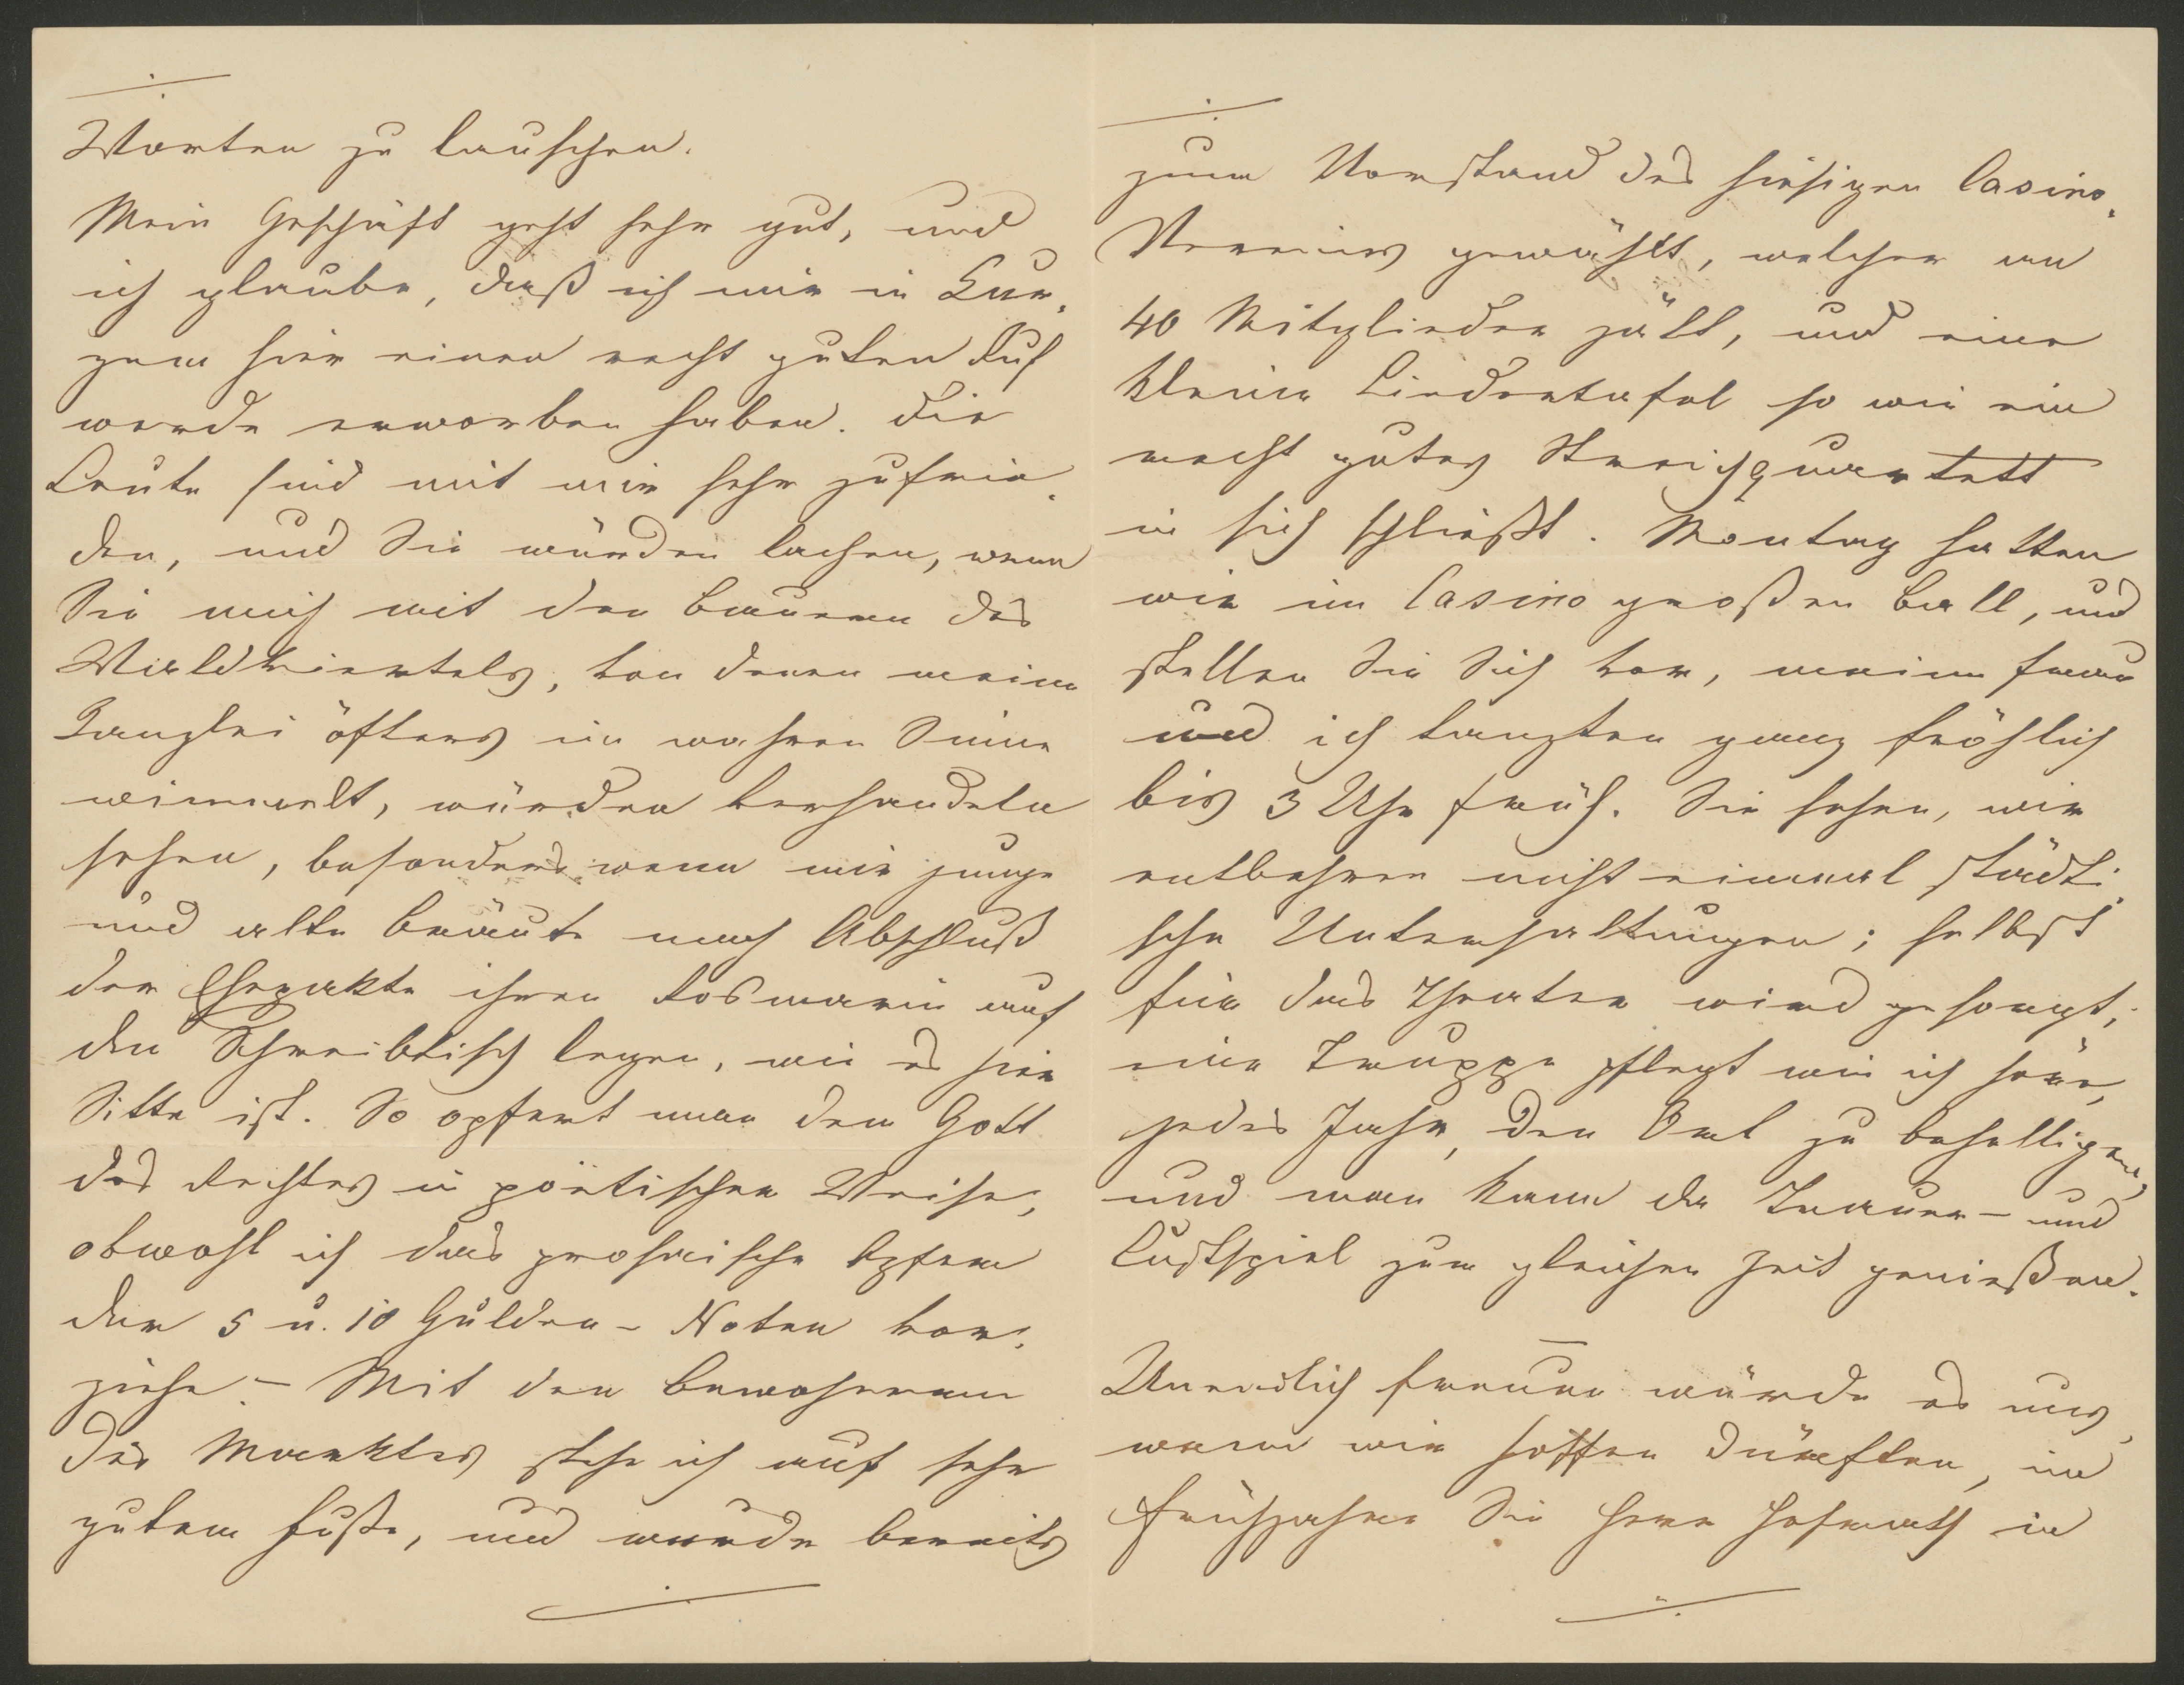 Worten zu lauschen.
Mein Geschäft geht sehr gut, und
ich glaube, daß ich mir in Kur-
zem hier einen recht guten Ruf
werde erworben haben. Die
Leute sind mit mir sehr zufrie-
den, und Sie würden lachen, wenn
Sie mich mit den Bauern des
Waldviertels, von denen meine
Kanzlei öfters im wahren Sinne
wimmelt, würden verhandeln
sehen, besonders wenn mir junge
und alte Bräute nach Abschluß
der Ehepakte ihren Rosmarin auf
den Schreibtisch legen, wie es hier
Sitte ist. So opfert man dem Gott
des Rechtes in poëtischer Weise,
obwohl ich das prosaische Opfern
der 5 u. 10 Gulden-Noten vor-
ziehe. – Mit den Bewohnern
des Marktes stehe ich auf sehr
gutem Fuße, und wurde bereits
zum Vorstand des hiesigen Casino-
Vereines gewählt, welcher an
40 Mitglieder zält, und eine
kleine Liedertafel so wie ein
recht gutes Streichquartett
in sich schließt. Montag hatten
wir im Casino großen Ball, und
stellen Sie Sich vor, meine Frau
und ich tanzten ganz fröhlich
bis 3 Uhr früh. Sie sehen, wir
entbehren nicht einmal städti-
sche Unterhaltungen; selbst
für das Theater wird gesorgt;
eine Truppe pflegt wie ich höre,
jedes Jahr, den Ort zu behelligen,
und man kann da Trauer- und
Lustspiel zur gleichen Zeit genießen.
–
Unendlich freuen würde es uns,
wenn wir hoffen dürften, im
Frühjahre Sie Herr Hofrath in